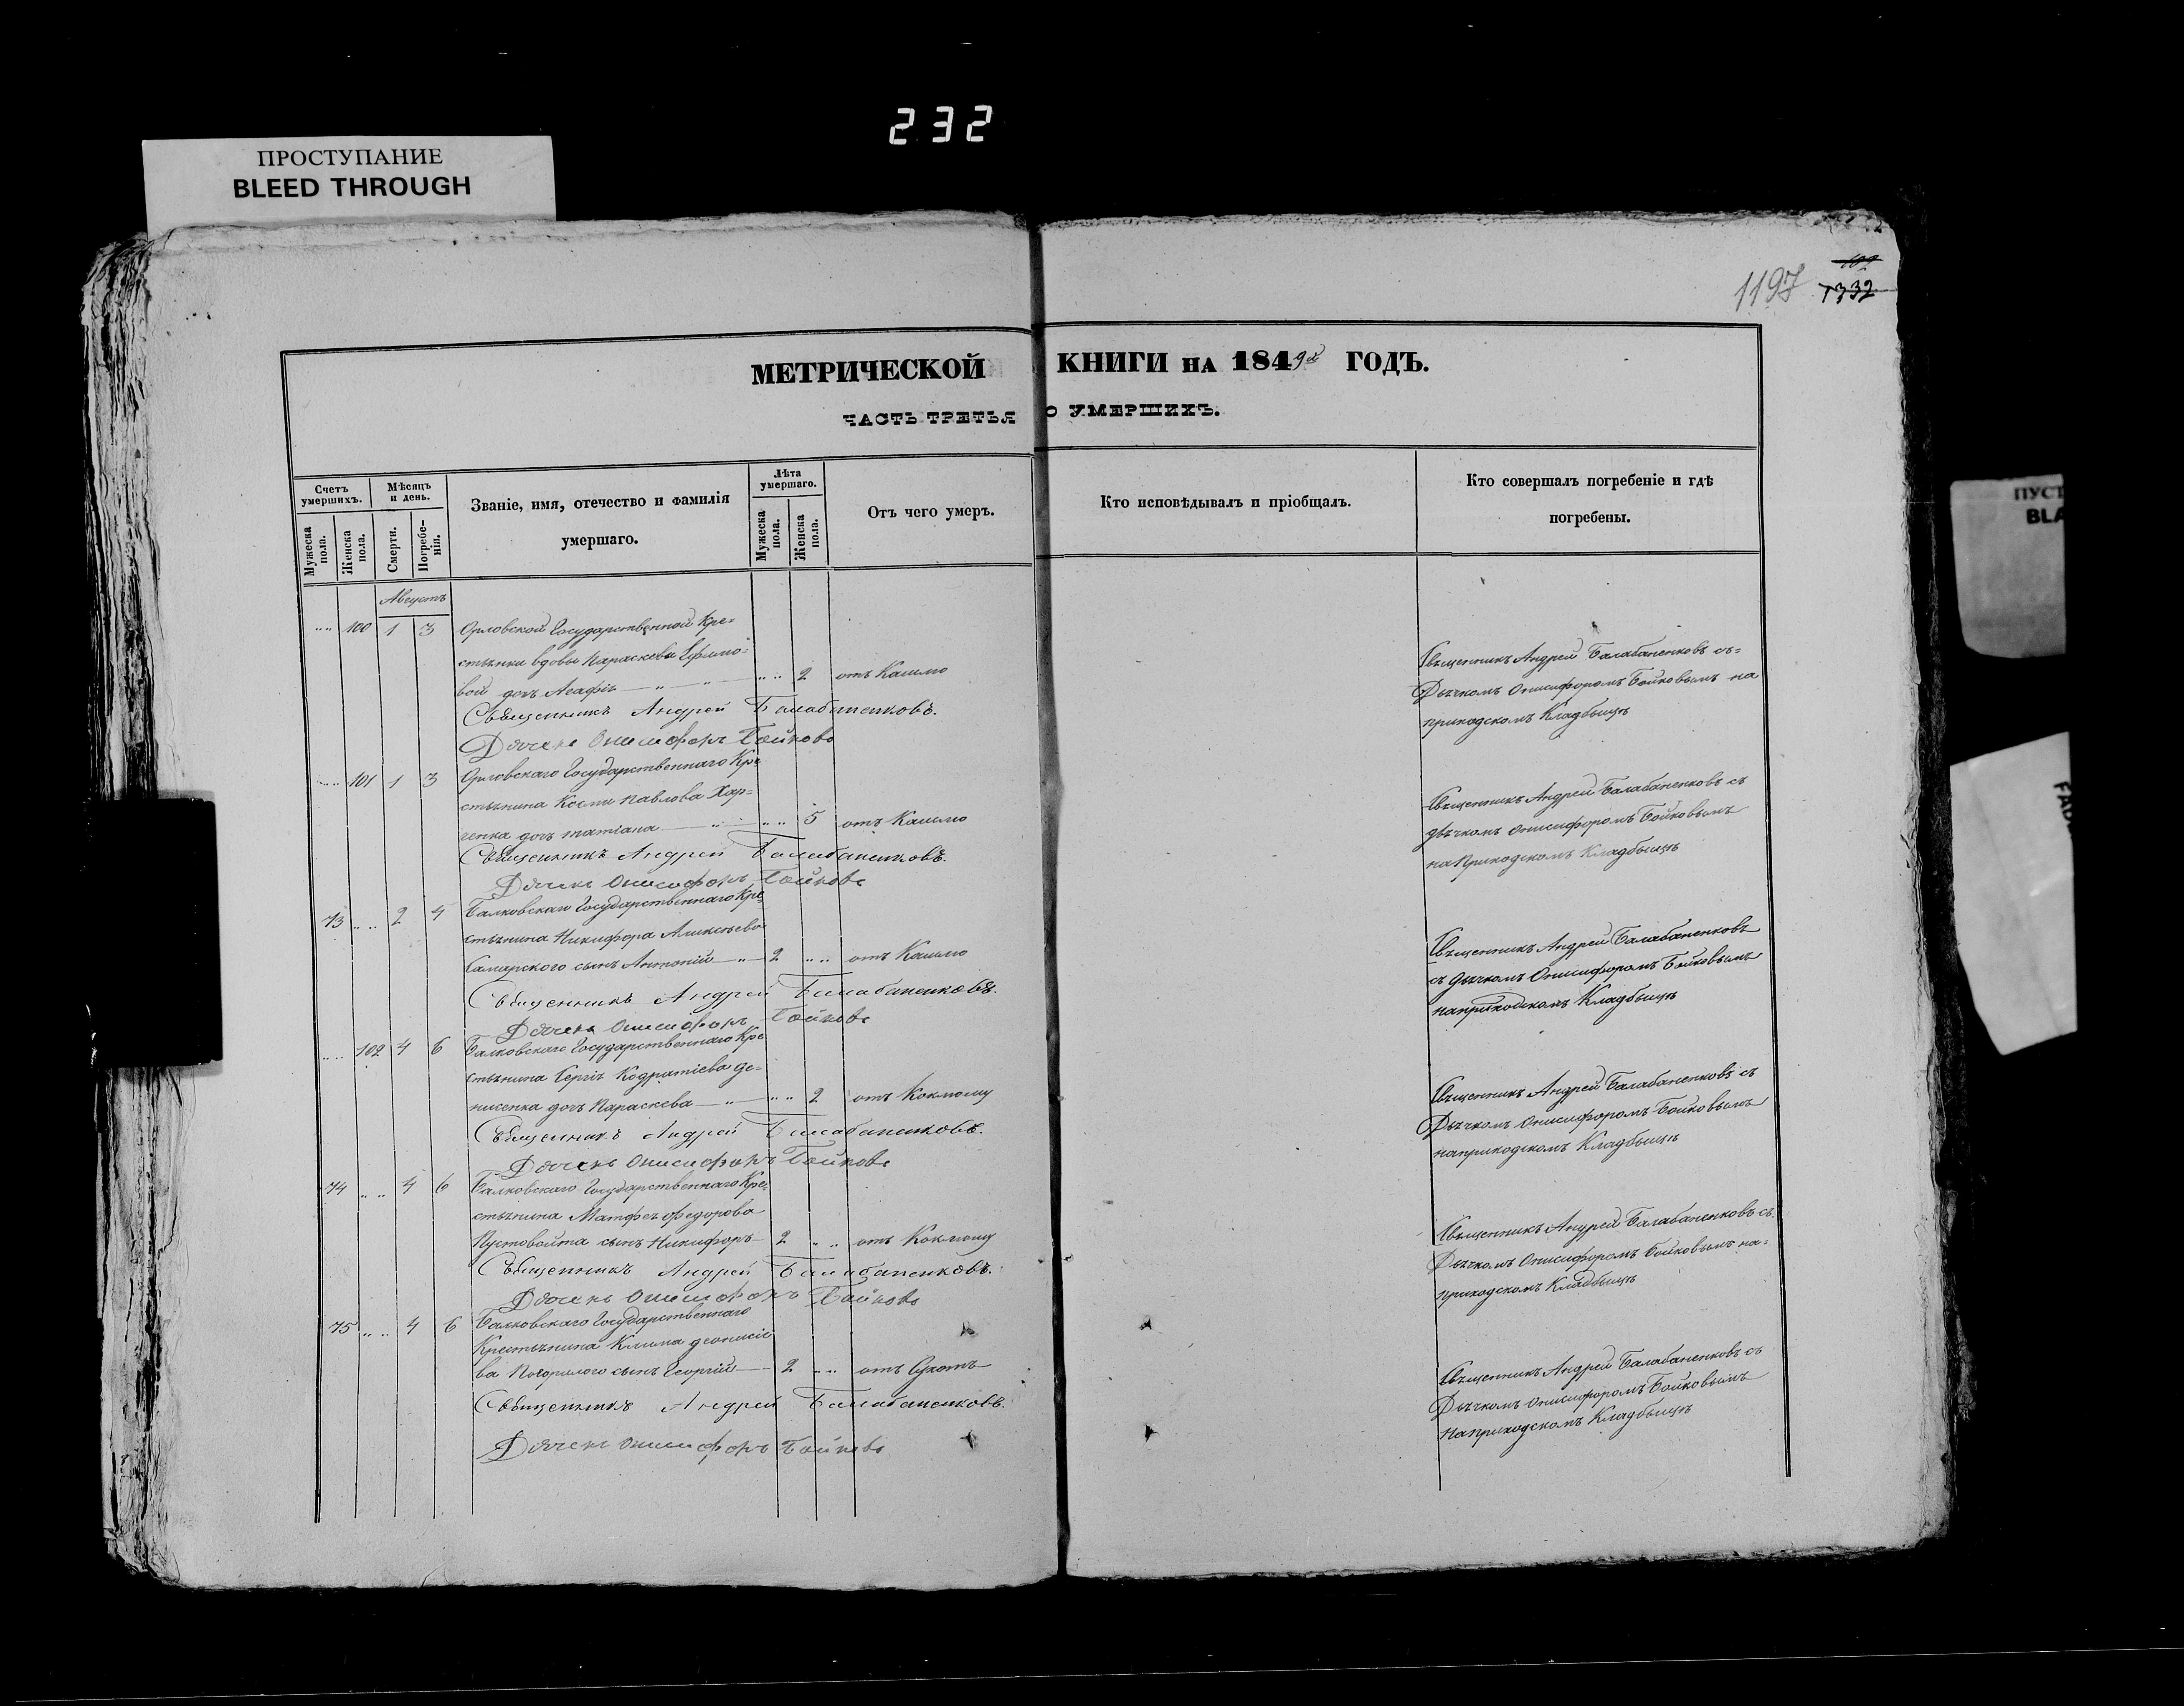 232
ПРОСТУПАНИЕ
BLEED THROUGH
1197
1332
МЕТРИЧЕСКОЙ КНИГИ НА 1849й ГОДЪ.
ЧАСТЬ ТРЕТЬЯ О УМЕРШИХЪ.
Счетъ умершихъ.
Мужеска пола.
Женска пола.
Мѣсяцъ и день.
Смерти.
Погребе-нія.
Званіе, имя, отечество и фамилія
умершаго.
Лѣта умершаго.
Мужеска пола.
Женска пола.
Отъ чего умеръ.
Кто исповѣдывалъ и пріобщалъ.
Кто совершалъ погребеніе и гдѣ
погребены.
Августъ
100 1 3 Орловской Государственной Кре=
стьянки вдовы Параскевы Ефимо=
вой дочь Агафія 2 отъ Кашлю
Священникъ Андрей Балабаненковъ.
Дячекъ Онисифоръ Бойковъ
Священникъ Андрей Балабаненковъ съ=
Дьячкомъ Онисифоромъ Бойковымъ на
приходскомъ Кладбищѣ
101 1 3 Орловскаго Государственнаго Кре
стьянина Космы Павлова Хар=
ченка дочь татіана 5 отъ Кашлю
Священникъ Андрей Балабаненковъ.
Дячекъ Онисифоръ Бойковъ
Священникъ Андрей Балабаненковъ съ
дьячкомъ Онисифоромъ Бойковымъ
на Приходскомъ Кладбищѣ
73 2 4 Балковскаго Государственнаго Кре=
стьянина Никифора Алексѣева
Самарского сынъ Антоній 2 отъ Кашлю
Священникъ Андрей Балабаненковъ.
Дячекъ Онисифоръ Бойковъ
Священникъ Андрей Балабаненковъ
съ Дьячкомъ Онисифоромъ Бойковымъ
на приходскомъ Кладбищѣ
102 4 6 Балковскаго Государственнаго Кре
стьянина Сергія Кодратіева де=
нисенка дочь Параскева 2 отъ Коклюшу
Священникъ Андрей Балабаненковъ.
Дячекъ Онисифоръ Бойковъ
Священникъ Андрей Балабаненковъ съ
Дьячкомъ Онисифоромъ Бойковымъ
на приходскомъ Кладбищѣ
74 4 6 Балковскаго Государственнаго Кре=
стьянина Матфея Федорова
Пустовойта сынъ Никифоръ 2 отъ Коклюшу
Священникъ Андрей Балабаненковъ.
Дячекъ Онисифоръ Бойковъ
Священникъ Андрей Балабаненковъ съ
Дьячкомъ Онисифоромъ Бойковымъ на=
приходскомъ Кладбищѣ
75 4 6 Балковскаго Государственнаго
Крестьянина Клима деонисіе
ва сынъ Георгій 2 отъ Сухотъ
Священникъ Андрей Балабаненковъ.
Дячекъ Онисифоръ Бойковъ
Священникъ Андрей Балабаненковъ съ
Дьячкомъ Онисифоромъ Бойковымъ
на приходскомъ Кладбищѣ